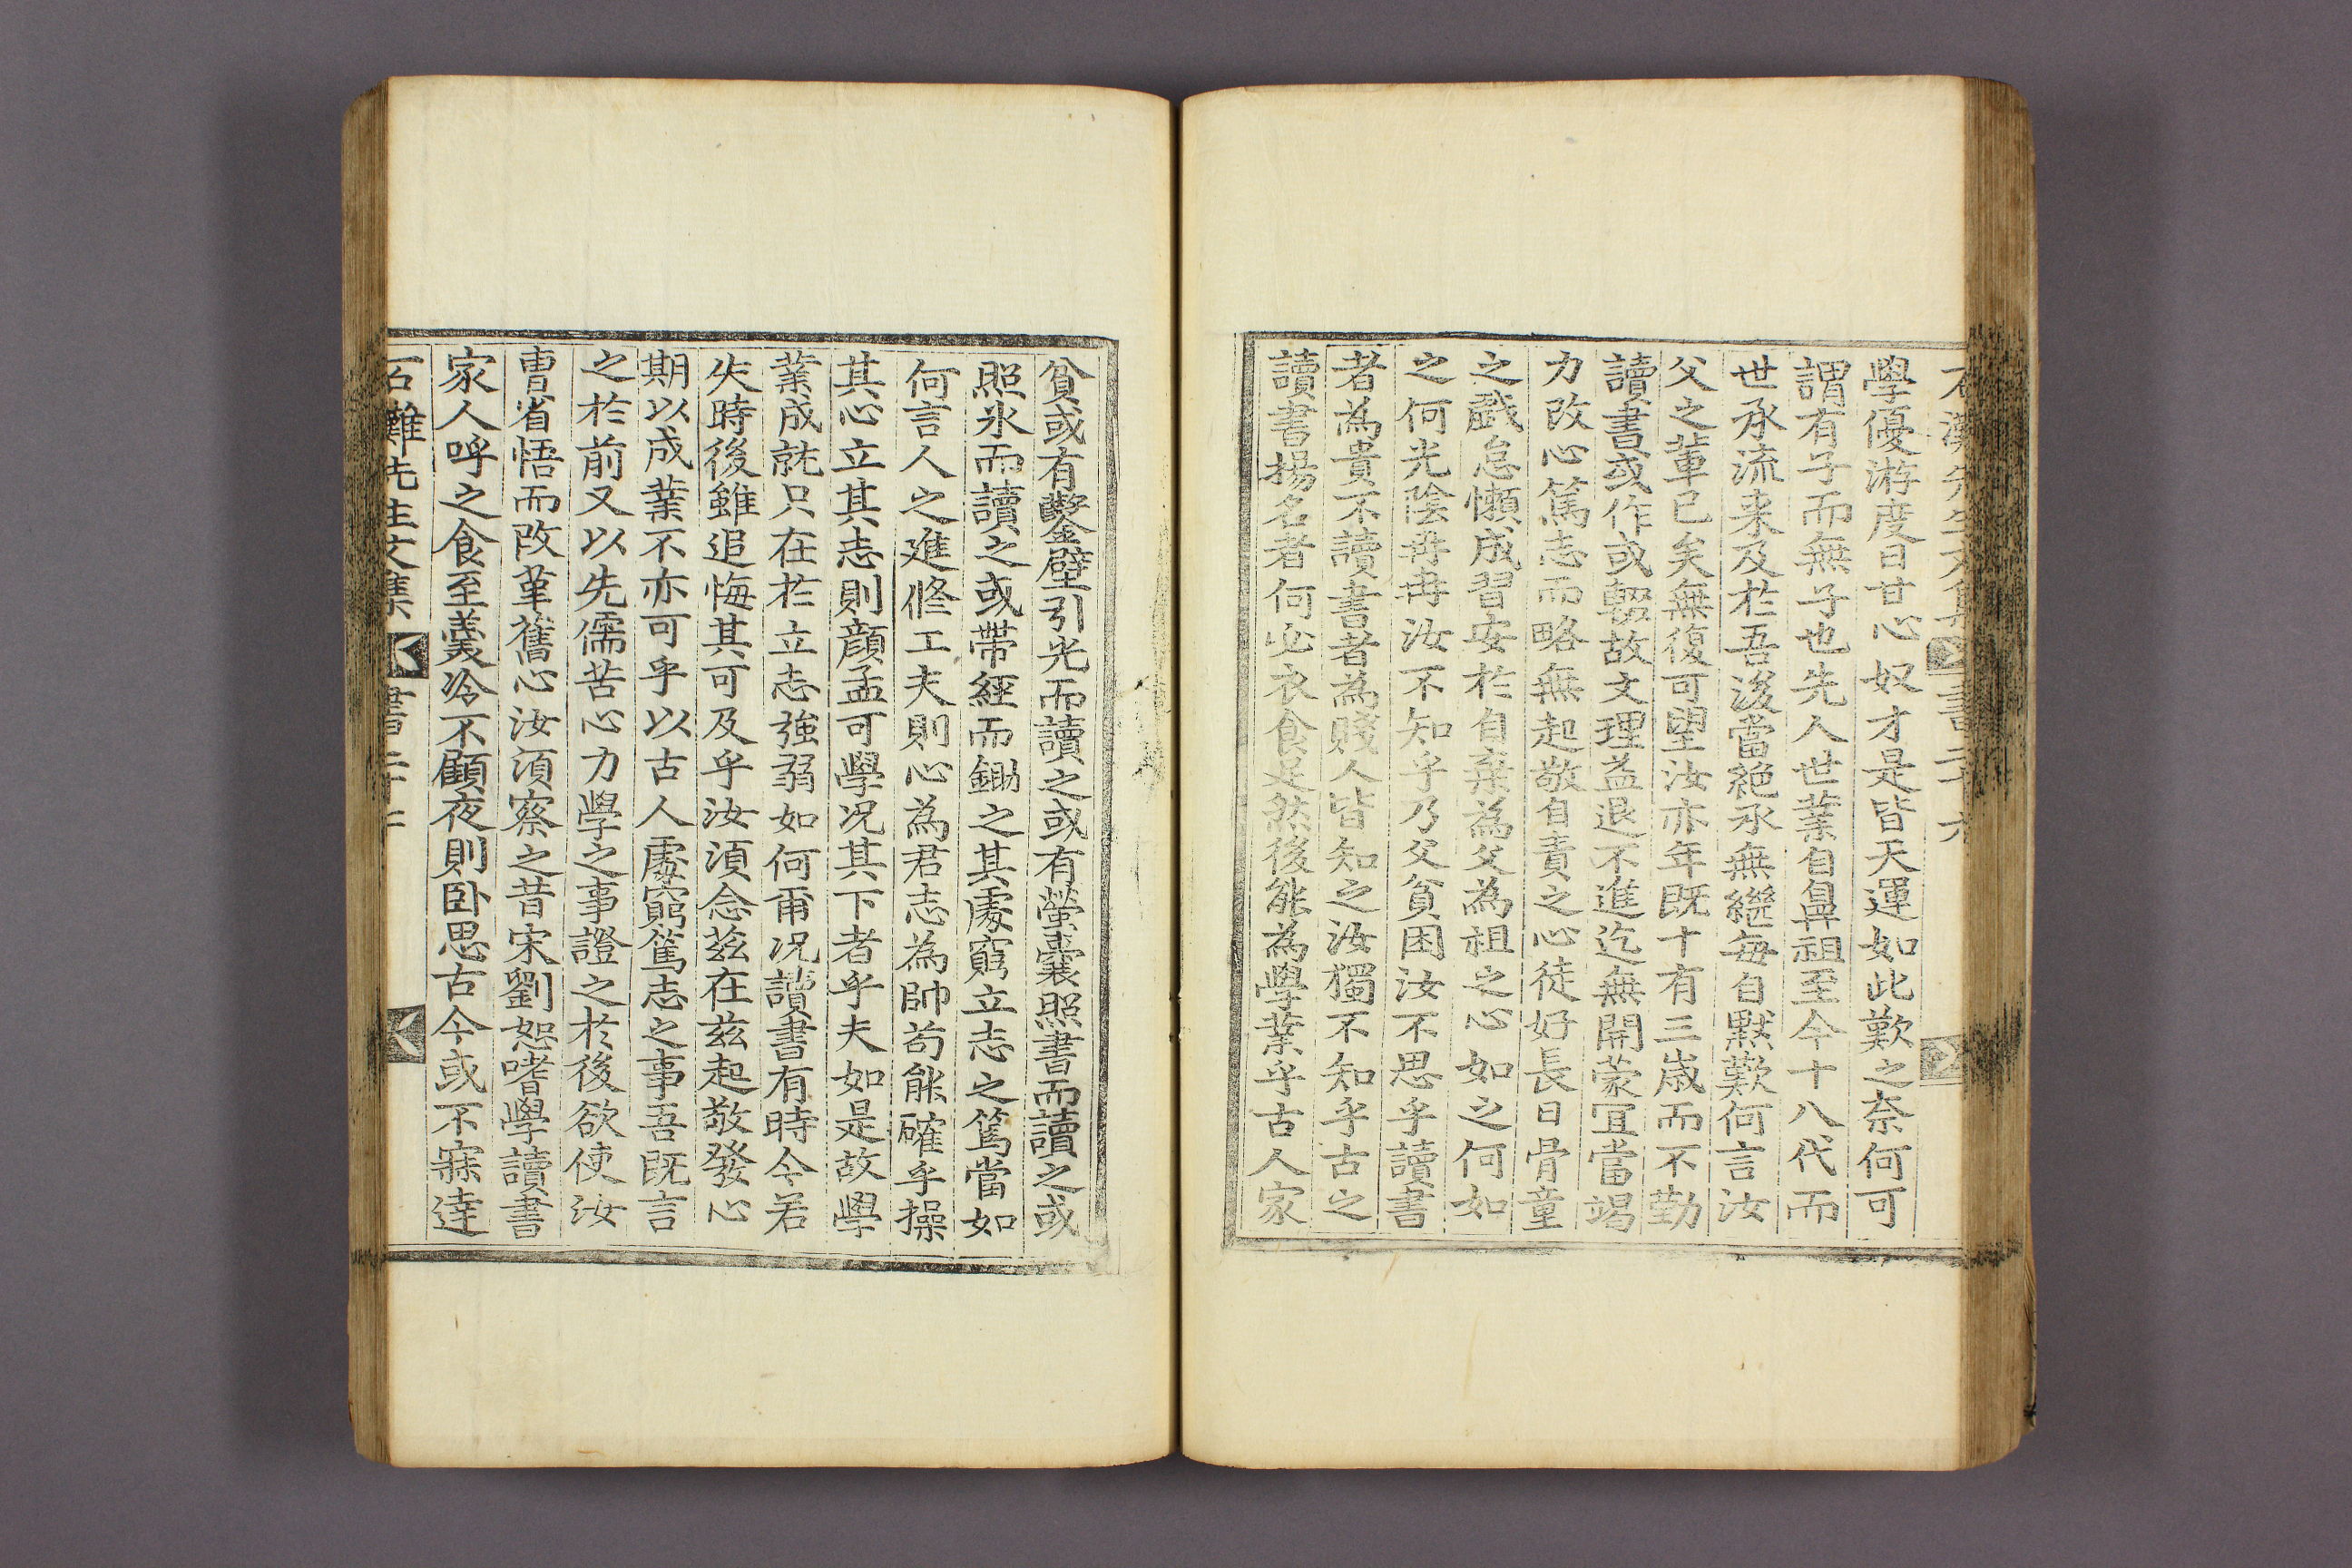 學優游度日甘心奴才是皆天運如此歎之奈何可
謂有子而無子也先人世業自鼻祖至今十八代而
世承流来及於吾後當絶承無繼每自默歎何言汝
父之輩已矣無復可望汝亦年既十有三歲而不勤
讀書或作或輟故文理益退不進迄無開蒙宜當竭
力改心篤志而略無起敬自責之心徒好長日骨童
之戱怠懶成習安於自棄為父為祖之心如之何如
之何光陰荏苒汝不知乎乃父貧困汝不思乎讀書
者為貴不讀書者為賤人皆知之汝獨不知乎古之
讀書揚名者何必衣食足然後能為學業乎古人家
貧或有鑿壁引光而讀之或有螢囊照書而讀之或
照氷而讀之或帶經而鋤之其處窮立志之篤當如
何言人之進修工夫則心為君志為帥苟能確乎操
其心立其志則顔孟可學况其下者乎夫如是故學
業成就只在於立志強弱如何爾况讀書有時今若
失時後雖追悔其可及乎汝須念茲在茲起敬發心
期以成業不亦可乎以古人處窮篤志之事吾既言
之於前又以先儒苦心力學之事證之於後欲使汝
曺省悟而改革舊心汝須察之昔宋劉恕嗜學讀書
家人呼之食至羹冷不顧夜則卧思古今或不寐達
石灘先生文集 書 二十七